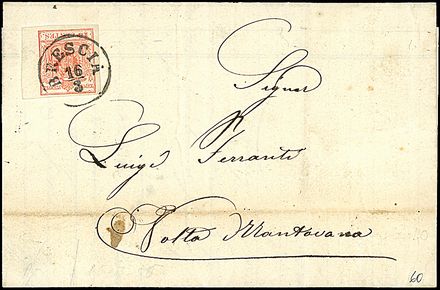 BRESCIA
16
3
Signor
Luigi Ferranti
Volta Mantovana
60